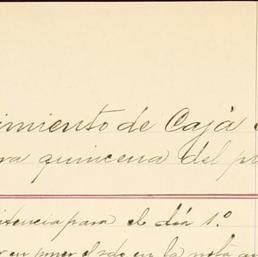 imiento de Caja
ra quincena del p
itencia para el día 1.º
en poner el rdo en la nota